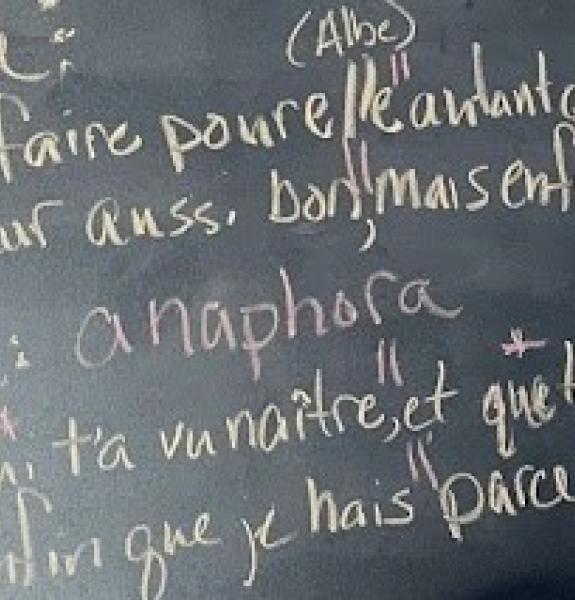 (Albe)
faire pour elle autant
ur auss. bon, mais enf
anaphora
t'a vu naître, et que t
que je hais parce